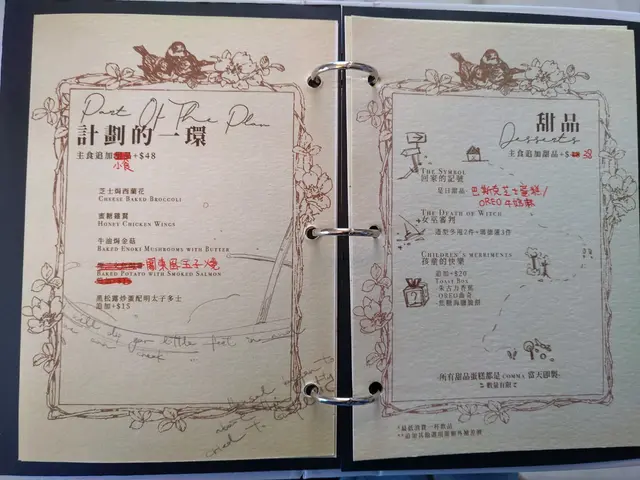 Part Of The Plan
計劃的一環
主食追加 +$48
小食
芝士焗西蘭花
CHEESE BAKED BROCCOLI
蜜糖雞翼
HONEY CHICKEN WINGS
牛油焗金菇
BAKED ENOKI MUSHROOMS WITH BUTTER
關東風玉子燒
BAKED POTATO WITH SMOKED SALMON
黑松露炒蛋配明太子多士
追加+$15
甜品
Desserts
主食追加甜品+$ 38
THE SYMBOL
回家的記號
是日甜品-巴斯克芝士蛋糕/
OREO
THE DEATH OF WITCH
女巫審判
造型多甩2件+瑪德蓮1件
CHILDREN'S MERRIMENTS
孩童的快樂
追加+$20
TOAST BOX
-朱古力香蕉
-OREO曲奇
-焦糖海鹽脆餅
-所有甜品蛋糕都是 COMMA 當天即製-
數量有限
*最低消費一杯飲品